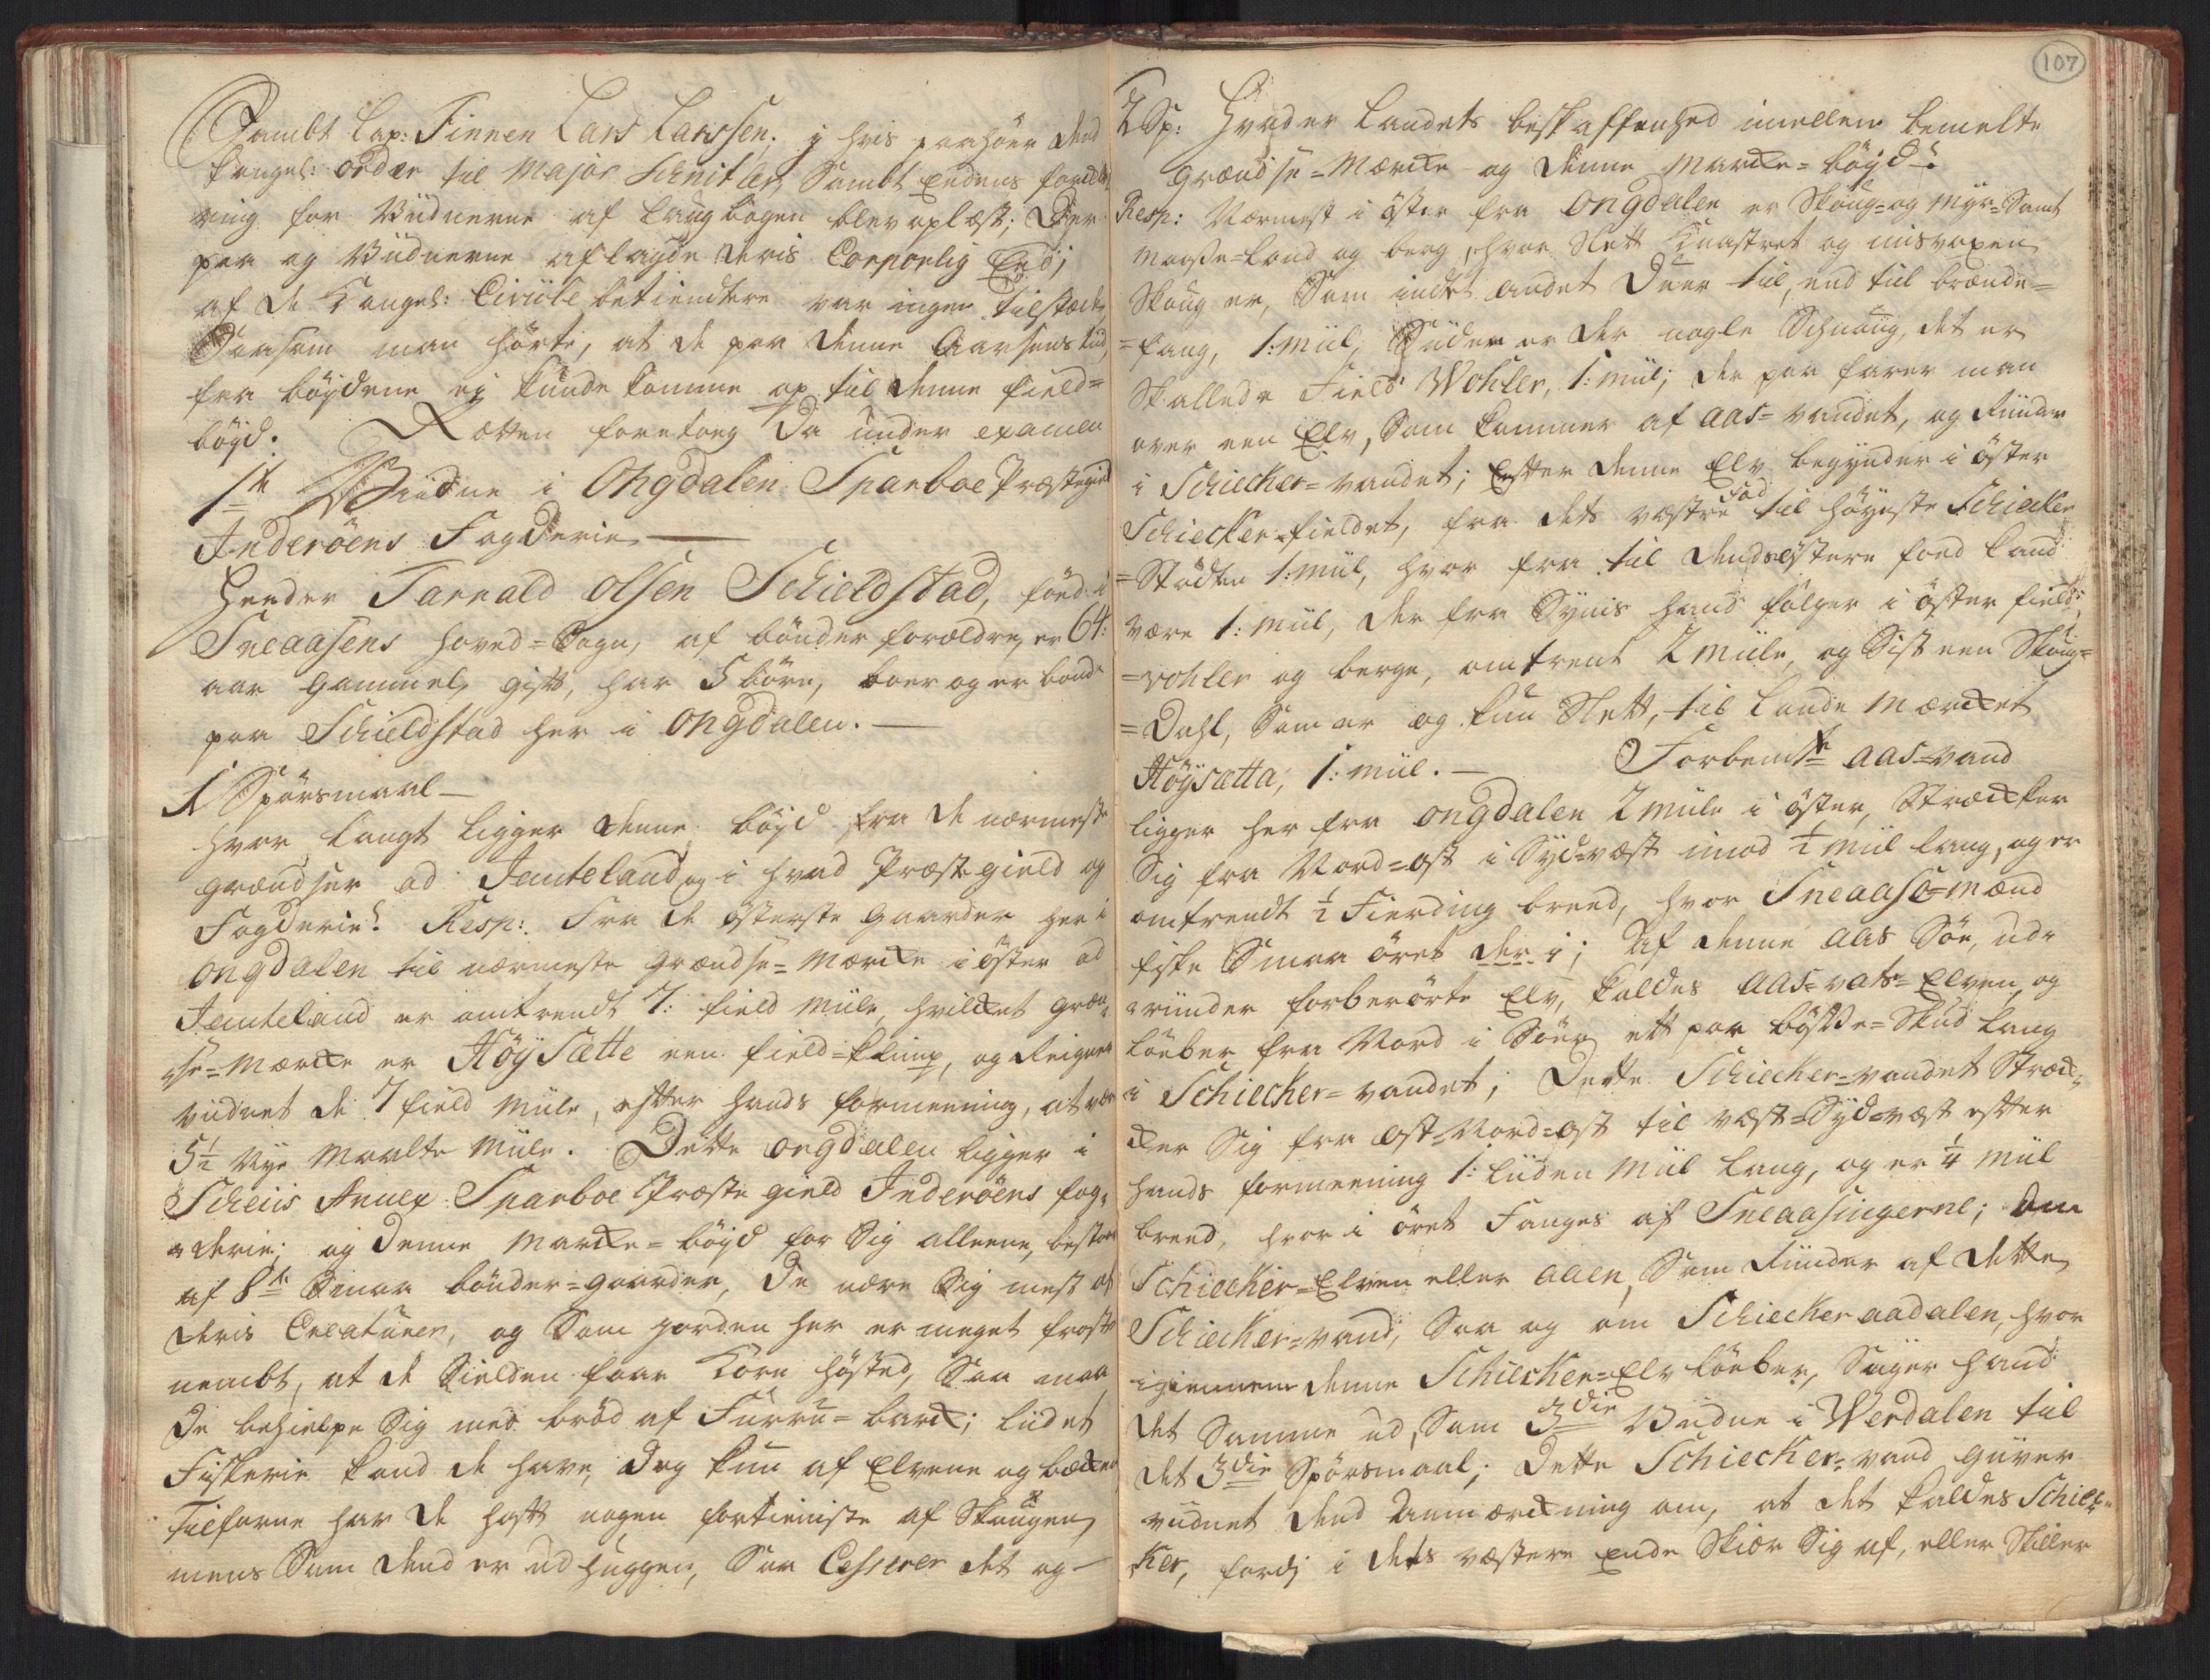 Sambt Lap: Finnen Lars Larssen; i hvis paahöer dend
Kongel: ordre til Major Schnitler, Sambt Eedens forkla-
ring for Vidnerne af Laugbogen blev oplæst; Der-
paa og Vidnerne aflagde deris Corporlig Eed;
af de Kongel: Civile betiendtere var ingen tilstæde,
Saasom man hörte, at de paa denne Aarsens tid,
fra böyderne ej kunde komme op til denne field-
böyd. Rætten foretoeg da under examen
1te Vidne i Ongdalen Sparboe Præstegield
Inderöens Fogderie —
Heeder Tarrald Olsen Schieldstad, föed i
Sneaasens hoved-Sogn, af bönder forældre, er 64:
aar gammel, gift, har 5 börn, boer og er bonde
paa Schieldstad her i Ongdalen. —
1 Spörsmaal —
hvor langt ligger denne böyd fra de nærmeste
grændser ad Jemteland, og i hvad Præstegield og
Fogderie? Resp: Fra de österste gaarder her i
Ongdalen til nærmeste grændse-Mærcke i öster ad
Jemteland er omtrendt 7: field Miile, hvilcket græn-
se-Mærcke er HöySætte een field-Klimp, og reigner
vidnet de 7 field Miile, efter hands formeening, at være
5½ Nye Maalte Miile. Dette ongdalen ligger i
Scheiis Annex Sparboe Præste gield Inderöens fog-
derie; og denne Marcke-böyd for Sig alleene, bestaar
af 8te Smaa bönder-gaarder, De nære Sig mest af
deris Creaturer, og Som jorden her er meget frost-
nembt, at de Sielden faar Korn hösted, Saa maa
De behielpe Sig med bröd af Furru-barck; lidet
Fiskerie kand de have, dog kun af Elvene og bæckene
Tilforne har de haft nogen fortieniste af Skougen,
mens Som dend er udhuggen, Saa Cesserer det og —
107
2 Sp: Hvad er Landets beskaffenhed imellem bemelte
grændse-Mærcke og denne Marcke-böyd?
Resp: Nærmest i öster fra Ongdalen er Skoug-og Myr-Samt
Moese-Land og berg, hvor Slett Knastret og misvoxen
Skoug er, Som intet andet duer til, end til brænde-
-fang, 1: Miil, Siden er der nogle Schnoug, det er
Skallede Field Wohler, 1: Miil; der paa farer man
over een Elv, Som kommer af Aas-vandet, og rinder
i Schiecker-vandet; Efter denne Elv begynder i öster
Schiecker-fieldet, fra dets vestre fod til höyeste Schiecker
-Stödten 1: Miil, hvor fra til dends östere foed kand
være 1: Miil, der fra Synis hand fölger i öster field-
-vohler og berge, omtrent 2 Miile, og Sist een Skoug-
-Dahl, Som er og kun Slett, til Lande Mærcket
Höysætta, 1: Miil. — Forbemte Aas-vand
ligger her fra ongdalen 2 Miile i öster, Strækker
Sig fra Nord-ost i Syd-vest imod ½ Miil lang, og er
omtrendt ½ Fierding breed, hvor Sneaase-mænd
fiske Smaa öret der i; Af denne Aas Söe, ud-
rinder forberörte Elv, kaldes Aas-vats-Elven, og
löeber fra Nord i Söer ett par bösse-Skud lang
i Schiecker-vandet; Dette Schiecker-vandet Stræc-
ker Sig fra ost-Nord-ost til vest-Syd-vest efter
hands formeening 1: liiden Miil lang, og er ¼ Miil
breed, hvor i öret Fanges af Sneaasingerne; Om
Schiecker-Elven eller Aaen, Som rinder af dette
Schiecker-vand, Saa og om Schiecker aadalen, hvor
igiennem denne Schiecker-Elv löeber, Siger hand
det Samme ud, Som 3die Vidne i Werdalen til
det 3die Spörsmaal; Dette Schiecker-vand giiver
vidnet dend Anmærckning om, at det kaldes Schiec-
ker, fordj i dets vestere Ende Skiær Sig af, eller Skiller